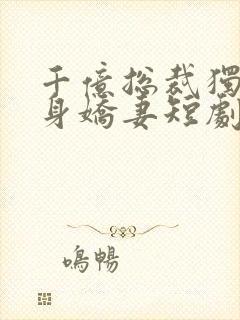 千億總裁獨
身嬌妻短劇
鳴暢